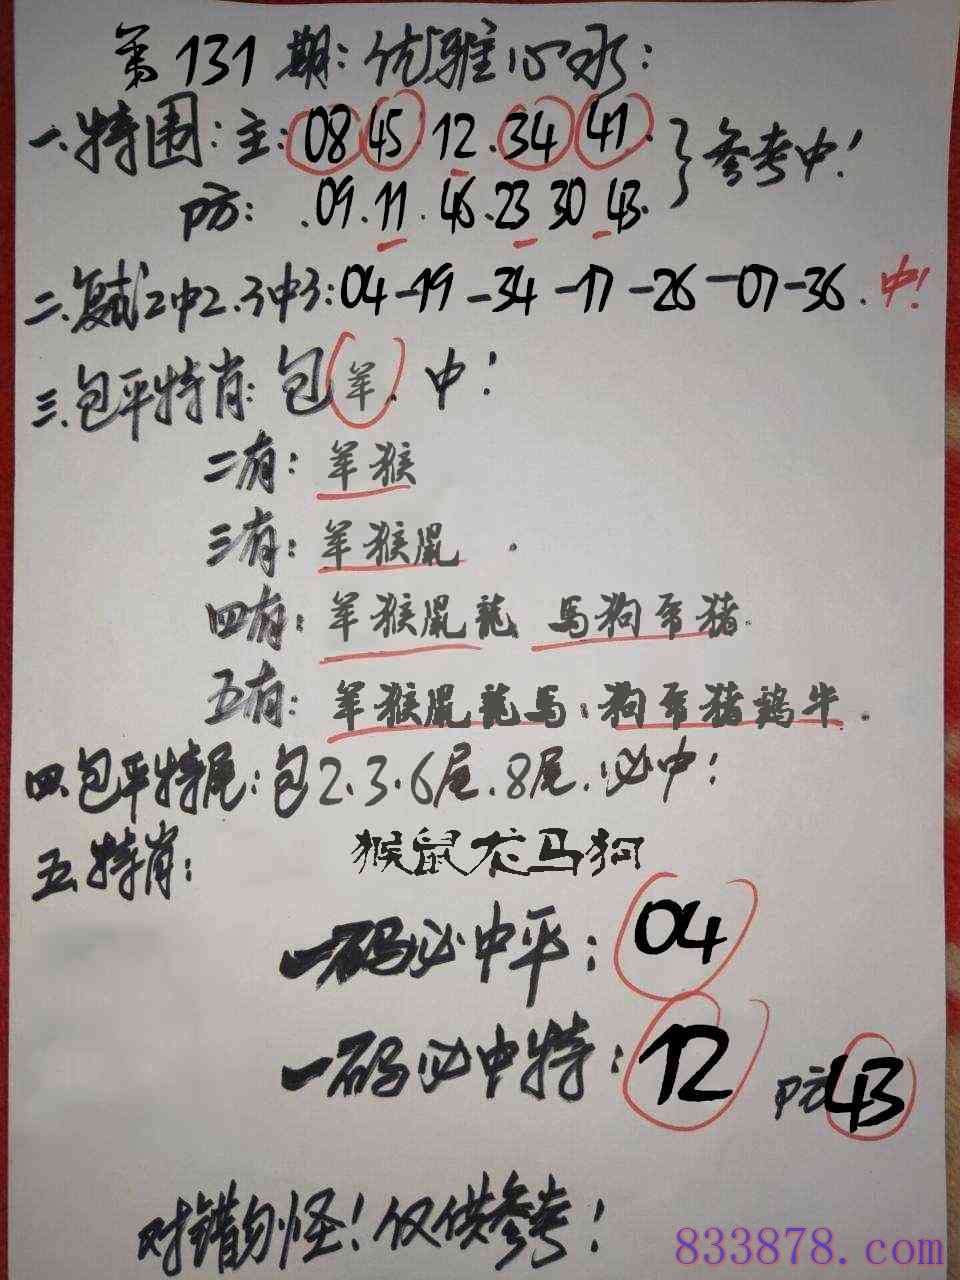 第131期:优雅心水:
一.特围:主:08 45.12.34 41.}参考中!
防:.09.11.46.23 30 43.
二.复试2中2.3中3:04-19-34-17-26-07-36.中!
三.包平特肖:包羊.中!
二有:羊猴
三有:羊猴鼠.
四有:羊猴鼠龍 馬狗兔猪.
五有:羊猴鼠龍馬.狗兔猪鷄牛.
四.包平特尾:包2.3.6尾.8尾.必中!
五.特肖:猴鼠龙马狗
一码必中平:04
一码必中特:12 防43
对错勿怪!仅供参考!
833878.com